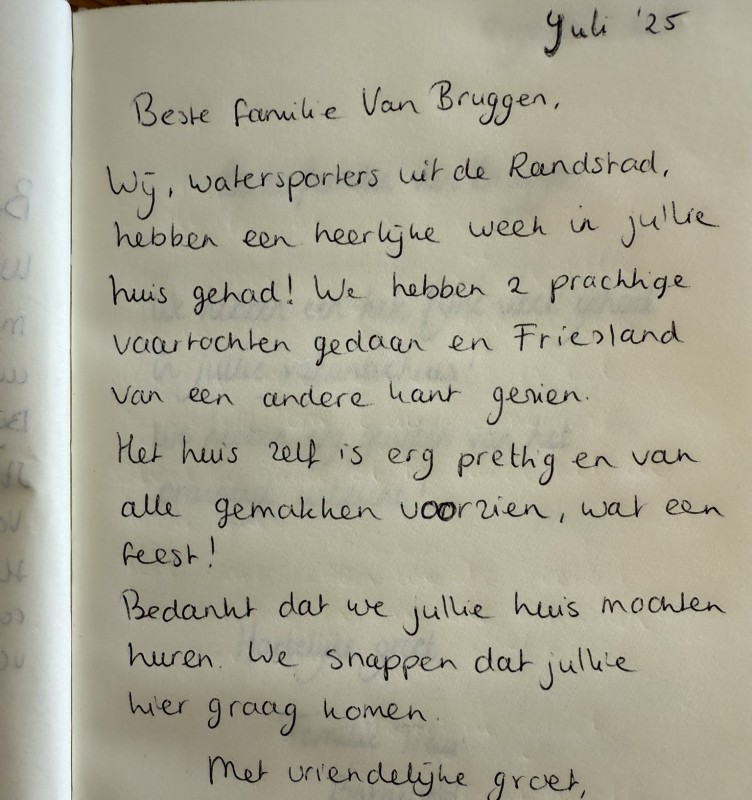 Juli '25
Beste familie Van Bruggen,
Wij, watersporters uit de Randstad,
hebben een heerlijke week in jullie
huis gehad! We hebben 2 prachtige
vaartochten gedaan en Friesland
van een andere kant gezien.
Het huis zelf is erg prettig en van
alle gemakken voorzien, wat een
feest!
Bedankt dat we jullie huis mochten
huren. We snappen dat jullie
hier graag komen.
Met vriendelijke groet,